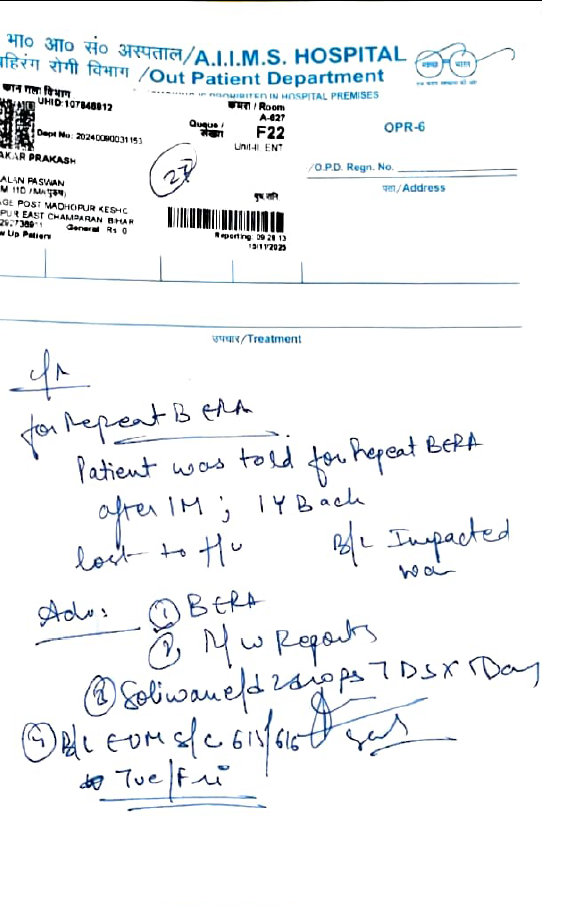 भा० आ० सं० अस्पताल/A.I.I.M.S. HOSPITAL
बहिरंग रोगी विभाग /Out Patient Department
IN HOSPITAL PREMISES
कान गला विभाग
UHID:107848912
कमरा / Room
A-627
Dept No: 20240090031153
Queue /
संख्या
F22
Unit-II ENT
OPR-6
AKAR PRAKASH
27
/O.P.D. Regn. No.
ALAN PASWAN
पता/Address
GE POST MADHOPUR KESHO
PUR EAST CHAMPARAN BIHAR
General Rs 0
Reporting: 09:28:13
w Up Patient
उपचार/Treatment
for Repeat BERA
Patient was told for Repeat BERA
after 1M ; 1Y Back
lost to f/u
B/L Impacted
wax
Adv:
① BERA
② R/w Reports
③ Soliwax e/d 2 drops
④ B/L EUM
Tue/Fri